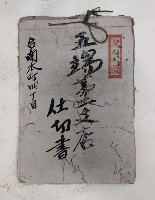 五端美支店
仕切書
台南本町四丁目